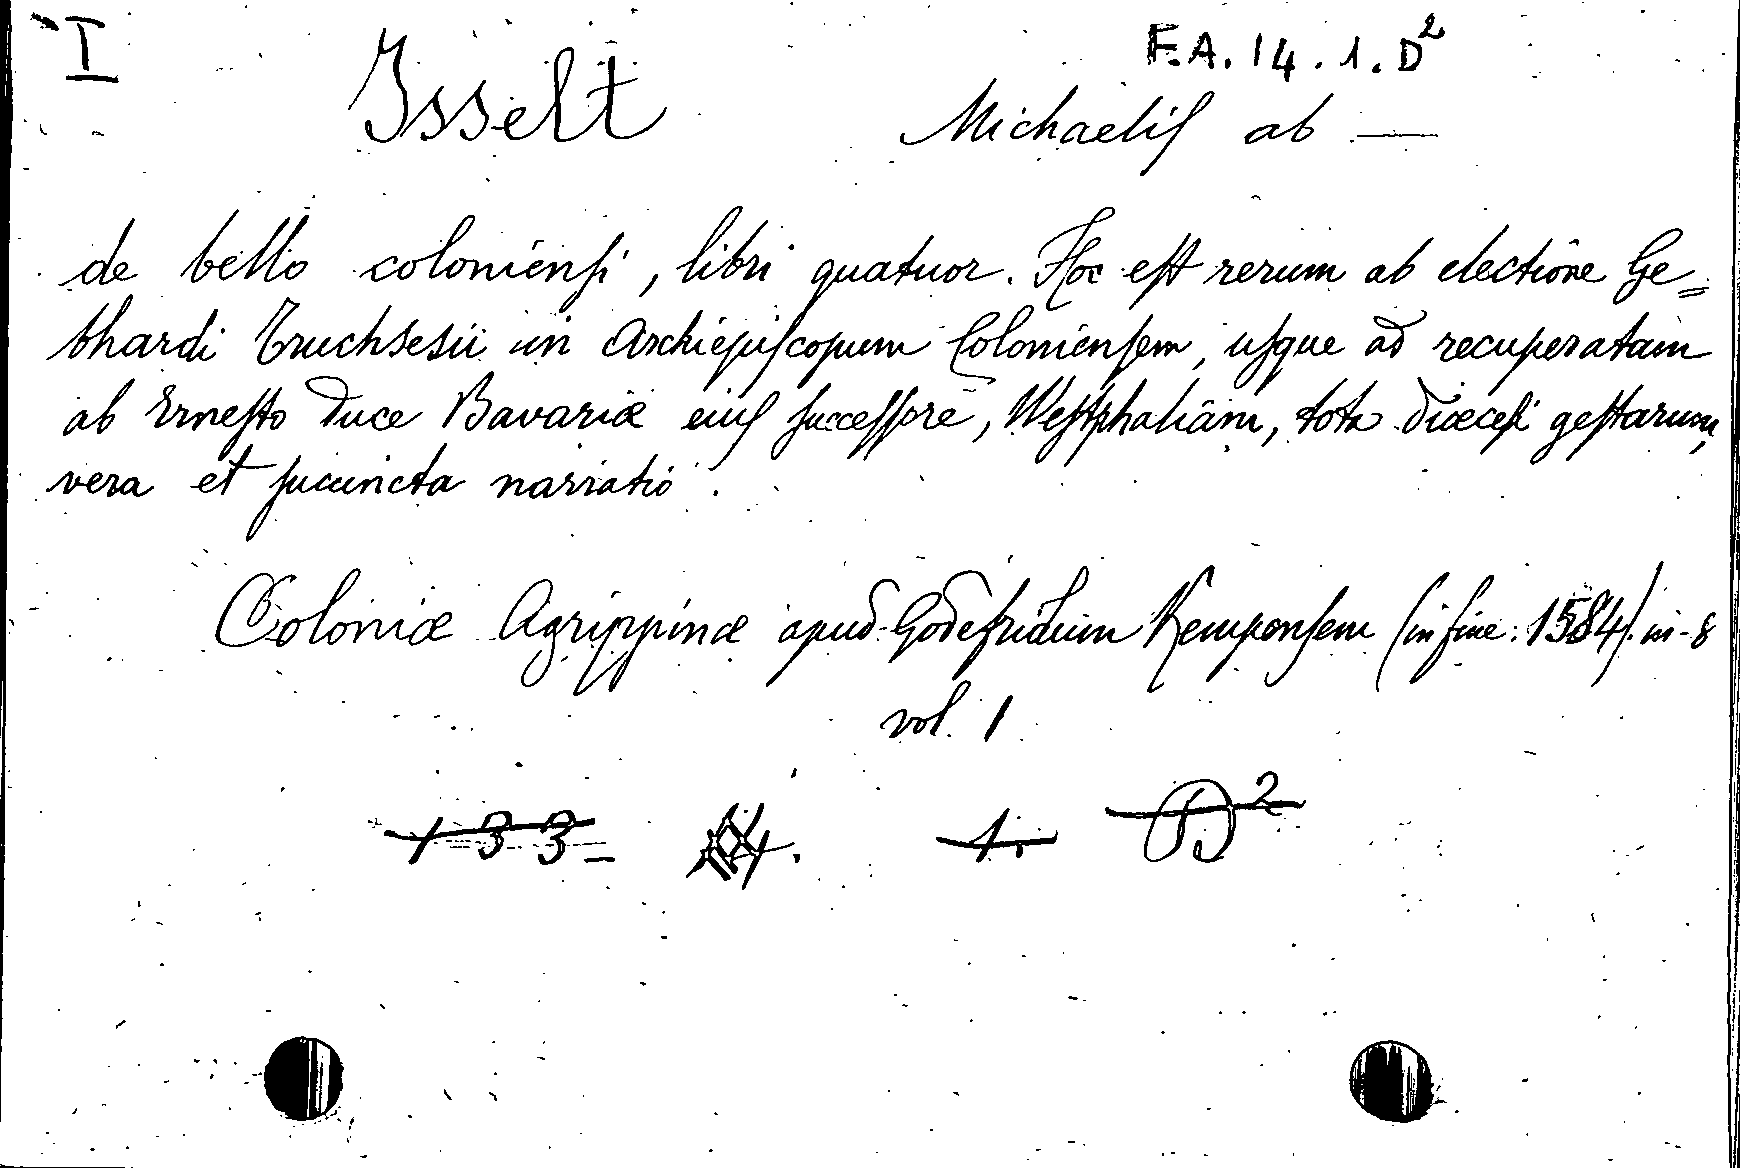 I
F.A. 14.1.D²
Isselt Michaelis ab —
de bello coloniensi, libri quatuor. Hoc est rerum ab electione Ge=
bhardi Truchsesii in Archiepiscopum Coloniensem, usque ad recuperatam
ab Ernesto Duce Bavariæ eius successore, Westphaliam, tota diœcesi gestarum,
vera et succincta narratio.
Coloniæ Agrippinæ apud Godefridum Kempensem (in fine: 1584). in-8
vol. 1
133– 1. D²